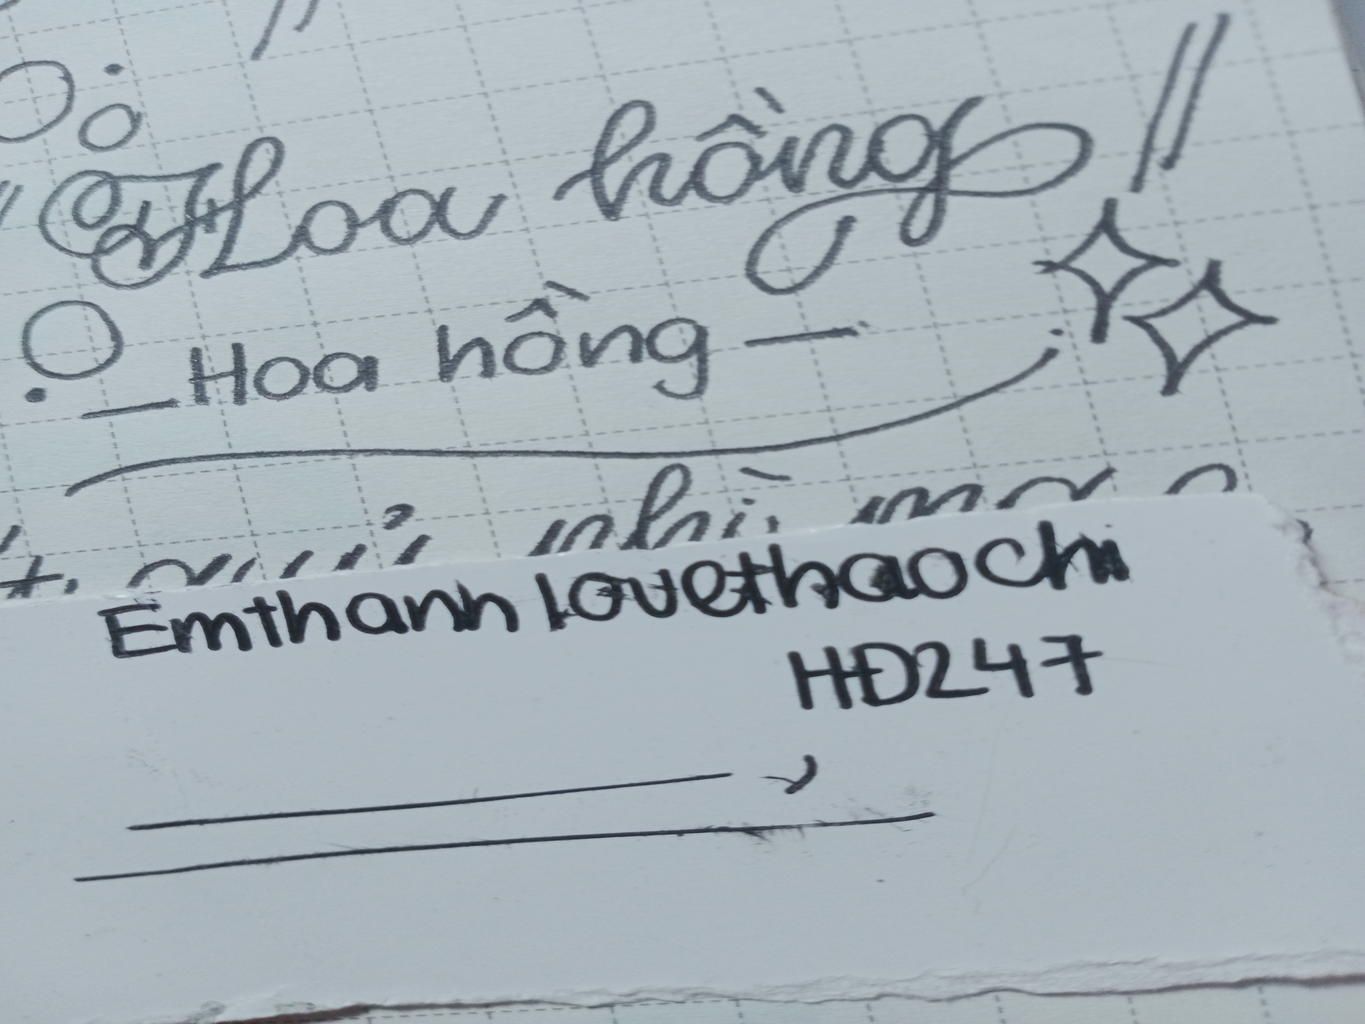 Hoa hồng
Hoa hồng
nhì
Emthanh lovethaochi
HĐ247